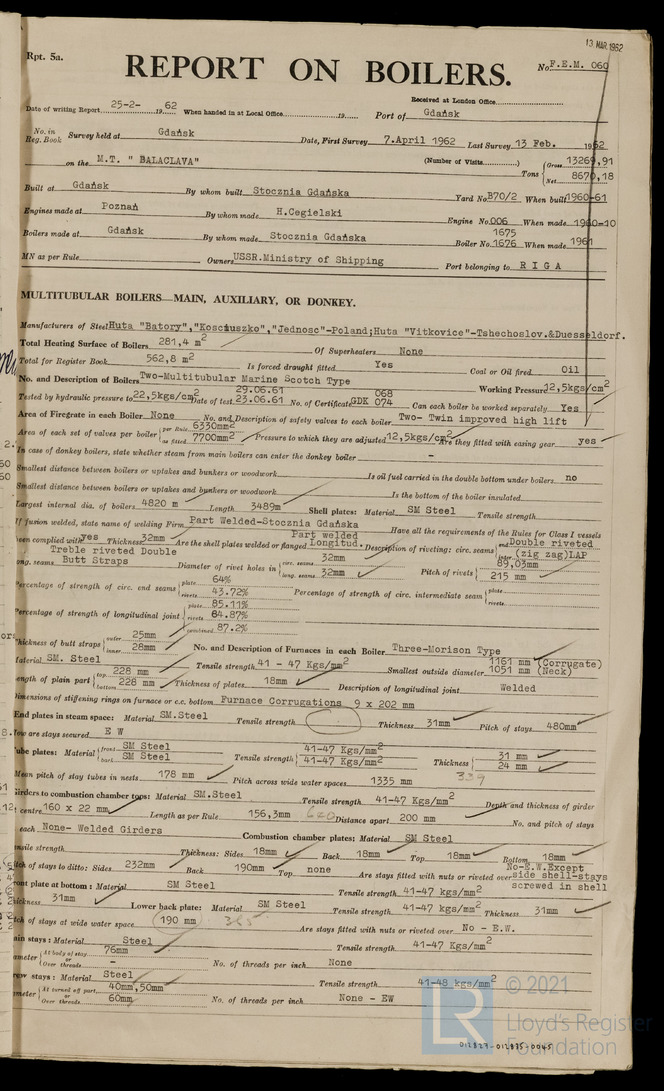 13 MAR 1962
Rpt. 5a.
No. F.E.M. 060
REPORT ON BOILERS.
Received at London Office
Date of writing Report 25-2- 19 62 When handed in at Local Office 19 Port of Gdańsk
No. in Reg. Book Survey held at Gdańsk Date, First Survey 7.April 1962 Last Survey 13 Feb. 1962
on the M.T. " BALACLAVA" (Number of Visits) Tons Gross 13269,91
Net 8670,18
Built at Gdańsk By whom built Stocznia Gdańska Yard No. B70/2 When built 1960-61
Engines made at Poznań By whom made H.Cegielski Engine No. 006 When made 1960-10
Boilers made at Gdańsk By whom made Stocznia Gdańska Boiler No. 1675 1676 When made 1961
MN as per Rule Owners USSR.Ministry of Shipping Port belonging to R I G A
MULTITUBULAR BOILERS—MAIN, AUXILIARY, OR DONKEY.
Manufacturers of Steel Huta "Batory","Kosciuszko","Jednosc"-Poland;Huta "Vitkovice"-Tshechoslov.&Duesseldorf.
Total Heating Surface of Boilers 281,4 m2 Of Superheaters None
Total for Register Book 562,8 m2 Is forced draught fitted Yes Coal or Oil fired Oil
No. and Description of Boilers Two-Multitubular Marine Scotch Type Working Pressure 12,5kgs/cm2
Tested by hydraulic pressure to 22,5kgs/cm2 Date of test 29.06.61 23.06.61 No. of Certificate GDK 068 074 Can each boiler be worked separately Yes
Area of Firegrate in each Boiler None No. and Description of safety valves to each boiler Two- Twin improved high lift
Area of each set of valves per boiler per Rule 6330mm2 as fitted 7700mm2 Pressure to which they are adjusted 12,5kgs/cm2 Are they fitted with easing gear yes
In case of donkey boilers, state whether steam from main boilers can enter the donkey boiler -
Smallest distance between boilers or uptakes and bunkers or woodwork Is oil fuel carried in the double bottom under boilers no
Smallest distance between boilers or uptakes and bunkers or woodwork Is the bottom of the boiler insulated
Largest internal dia. of boilers 4820 m Length 3489m Shell plates: Material SM Steel Tensile strength
If fusion welded, state name of welding Firm Part Welded-Stocznia Gdańska Have all the requirements of the Rules for Class I vessels
been complied with yes Thickness 32mm Are the shell plates welded or flanged Part welded Longitud. Description of riveting: circ. seams end Double riveted
inter. (zig zag)LAP
long. seams Treble riveted Double Butt Straps Diameter of rivet holes in circ. seams 32mm long. seams 32mm Pitch of rivets 89,03mm 215 mm
Percentage of strength of circ. end seams plate 64% rivets 43.72% Percentage of strength of circ. intermediate seam plate rivets
Percentage of strength of longitudinal joint plate 85.11% rivets 84.87% combined 87.2%
Thickness of butt straps outer 25mm inner 28mm No. and Description of Furnaces in each Boiler Three-Morison Type
Material SM. Steel Tensile strength 41 - 47 Kgs/mm2 Smallest outside diameter 1161 mm (Corrugate) 1051 mm (Neck)
Length of plain part top 228 mm bottom 228 mm Thickness of plates 18mm Description of longitudinal joint Welded
Dimensions of stiffening rings on furnace or c.c. bottom Furnace Corrugations 9 x 202 mm
End plates in steam space: Material SM.Steel Tensile strength Thickness 31mm Pitch of stays 480mm
How are stays secured E W
Tube plates: Material front SM Steel back SM Steel Tensile strength 41-47 Kgs/mm2 41-47 Kgs/mm2 Thickness 31 mm 24 mm
Mean pitch of stay tubes in nests 178 mm Pitch across wide water spaces 1335 mm 339
Girders to combustion chamber tops: Material SM.Steel Tensile strength 41-47 Kgs/mm2 Depth and thickness of girder
at centre 160 x 22 mm Length as per Rule 156,3mm 620 Distance apart 200 mm No. and pitch of stays
in each None- Welded Girders Combustion chamber plates: Material SM Steel
Tensile strength Thickness: Sides 18mm Back 18mm Top 18mm Bottom 18mm
Pitch of stays to ditto: Sides 232mm Back 190mm Top none Are stays fitted with nuts or riveted over No-E.W.Except side shell-stays screwed in shell
Front plate at bottom: Material SM Steel Tensile strength 41-47 kgs/mm2
Thickness 31mm Lower back plate: Material SM Steel Tensile strength 41-47 kgs/mm2 Thickness 31mm
Pitch of stays at wide water space 190 mm 385 Are stays fitted with nuts or riveted over No - E.W.
Main stays: Material Steel Tensile strength 41-47 Kgs/mm2
Diameter At body of stay 76mm or Over threads - No. of threads per inch None
Screw stays: Material Steel Tensile strength 41-48 kgs/mm2
Diameter At turned off part 40mm,50mm or Over threads 60mm No. of threads per inch None - EW
LR © 2021
Lloyd's Register
Foundation
012827-012835-0045